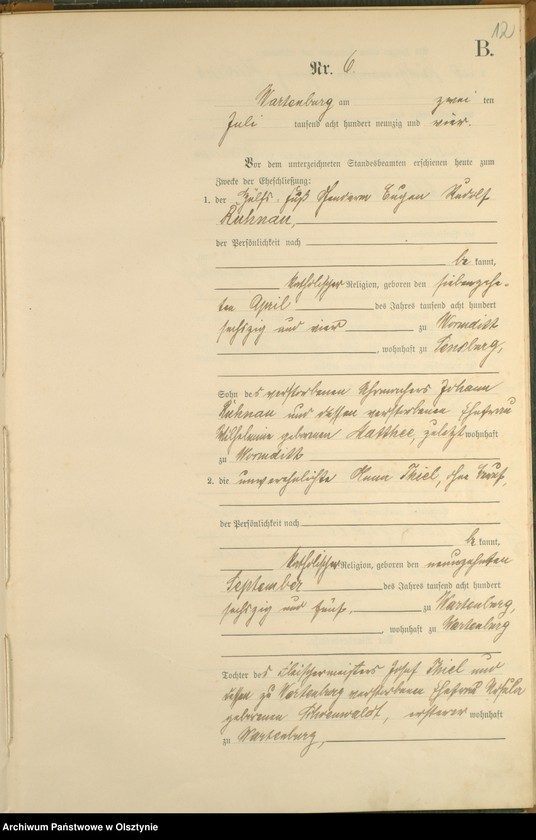 12
B.
Nr. 6
Wartenburg am zwei ten
Juli tausend acht hundert neunzig und vier.
Vor dem unterzeichneten Standesbeamten erschienen heute zum
Zwecke der Eheschließung:
1. der Hülfs-Fuß Gendarm Eugen Rudolf
Kühnau,
der Persönlichkeit nach
be kannt,
katholischer Religion, geboren den siebenzehn-
ten April des Jahres tausend acht hundert
sechszig und vier zu Wormditt
, wohnhaft zu Sensburg,
Sohn des verstorbenen Uhrmachers Johann
Kühnau und dessen verstorbene Ehefrau
Wilhelmine geborenen Matthee, zuletzt wohnhaft
zu Wormditt
2. die unverehelichte Anna Thiel, ohne Beruf,
der Persönlichkeit nach
be kannt,
katholischer Religion, geboren den neunzehnten
September des Jahres tausend acht hundert
sechszig und fünf, zu Wartenburg,
, wohnhaft zu Wartenburg
Tochter des Fleischermeisters Josef Thiel und
dessen zu Wartenburg verstorbene Ehefrau Ursula
geborenen , ersterer wohnhaft
zu Wartenburg,
Archiwum Państwowe w Olsztynie